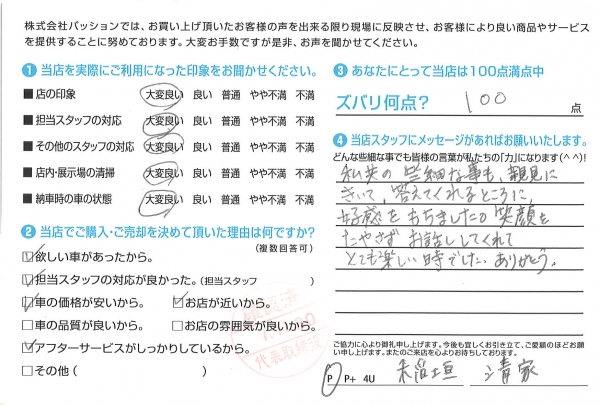 株式会社パッションでは、お買い上げ頂いたお客様の声を出来る限り現場に反映させ、お客様により良い商品やサービス
を提供することに努めております。大変お手数ですが是非、お声を聞かせてください。
❶ 当店を実際にご利用になった印象をお聞かせください。
■店の印象 大変良い 良い 普通 やや不満 不満
■担当スタッフの対応 大変良い 良い 普通 やや不満 不満
■その他のスタッフの対応 大変良い 良い 普通 やや不満 不満
■店内・展示場の清掃 大変良い 良い 普通 やや不満 不満
■納車時の車の状態 大変良い 良い 普通 やや不満 不満
❷ 当店でご購入・ご売却を決めて頂いた理由は何ですか?
(複数回答可)
☑欲しい車があったから。
☑担当スタッフの対応が良かった。(担当スタッフ )
☑車の価格が安いから。 ☑お店が近いから。
□車の品質が良いから。 □お店の雰囲気が良いから。
☑アフターサービスがしっかりしているから。
□その他( )
代表取締役
❸ あなたにとって当店は100点満点中
ズバリ何点? 100 点
❹ 当店スタッフにメッセージがあればお願いいたします。
どんな些細な事でも皆様の言葉が私たちの「力」になります(^^)!
私共の些細な事も、親見に
きいて、答えてくれるところに、
好感をもちました。笑顔を
たやさず お話ししてくれて
とても楽しい時でした。ありがとう。
ご協力に心より御礼申し上げます。今後も宜しくお引き立て、ご愛顧のほどお願
い申し上げます。またのご来店を心よりお待ちしております。
P P+ 4U 清家